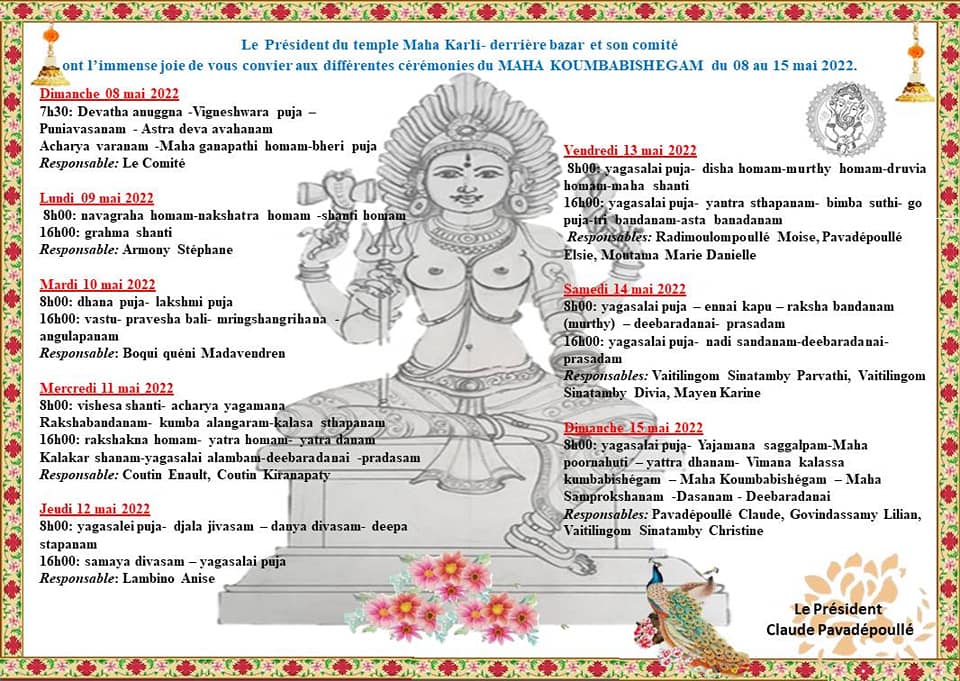 Le Président du temple Maha Karli- derrière bazar et son comité
ont l’immense joie de vous convier aux différentes cérémonies du MAHA KOUMBABISHEGAM du 08 au 15 mai 2022.
Dimanche 08 mai 2022
7h30: Devatha anuggna -Vigneshwara puja –
Puniavasanam - Astra deva avahanam
Acharya varanam -Maha ganapathi homam-bheri puja
Responsable: Le Comité
Lundi 09 mai 2022
8h00: navagraha homam-nakshatra homam -shanti homam
16h00: grahma shanti
Responsable: Armony Stéphane
Mardi 10 mai 2022
8h00: dhana puja- lakshmi puja
16h00: vastu- pravesha bali- mringshangrihana -
angulapanam
Responsable: Boqui quéni Madavendren
Mercredi 11 mai 2022
8h00: vishesa shanti- acharya yagamana
Rakshabandanam- kumba alangaram-kalasa sthapanam
16h00: rakshakna homam- yatra homam- yatra danam
Kalakar shanam-yagasalai alambam-deebaradanai -pradasam
Responsable: Coutin Enault, Coutin Kiranapaty
Jeudi 12 mai 2022
8h00: yagasalei puja- djala jivasam – danya divasam- deepa
stapanam
16h00: samaya divasam – yagasalai puja
Responsable: Lambino Anise
Vendredi 13 mai 2022
8h00: yagasalai puja- disha homam-murthy homam-druvia
homam-maha shanti
16h00: yagasalai puja- yantra sthapanam- bimba suthi- go
puja-tri bandanam-asta banadanam
Responsables: Radimoulompoullé Moise, Pavadépoullé
Elsie, Moutama Marie Danielle
Samedi 14 mai 2022
8h00: yagasalai puja – ennai kapu – raksha bandanam
(murthy) – deebaradanai- prasadam
16h00: yagasalai puja- nadi sandanam-deebaradanai-
prasadam
Responsables: Vaitilingom Sinatamby Parvathi, Vaitilingom
Sinatamby Divia, Mayen Karine
Dimanche 15 mai 2022
8h00: yagasalai puja- Yajamana saggalpam-Maha
poornahuti – yattra dhanam- Vimana kalassa
kumbabishégam – Maha Koumbabishégam – Maha
Samprokshanam -Dasanam - Deebaradanai
Responsables: Pavadépoullé Claude, Govindassamy Lilian,
Vaitilingom Sinatamby Christine
Le Président
Claude Pavadépoullé